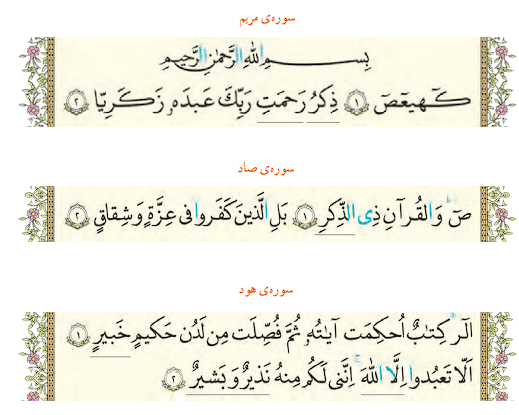 سوره‌ی مریم
بِسْمِ اللهِ الرَّحمٰنِ الرَّحیمِ
کٓهیعٓصٓ ﴿۱﴾ ذِکرُ رَحمَتِ رَبِّكَ عَبدَهٗ زَکَرِیّا ﴿۲﴾
سوره‌ی صاد
صٓ وَ القُرآنِ ذِی الذِّکرِ ﴿۱﴾ بَلِ الَّذینَ کَفَروا فی عِزَّةٍ وَ شِقاقٍ ﴿۲﴾
سوره‌ی هود
الٓرٰ کِتابٌ اُحکِمَت آیاتُهٗ ثُمَّ فُصِّلَت مِن لَدُن حَکیمٍ خَبیرٍ ﴿۱﴾
اَلّا تَعبُدوا اِلَّا اللهَ اِنَّنی لَکُم مِنهُ نَذیرٌ وَ بَشیرٌ ﴿۲﴾